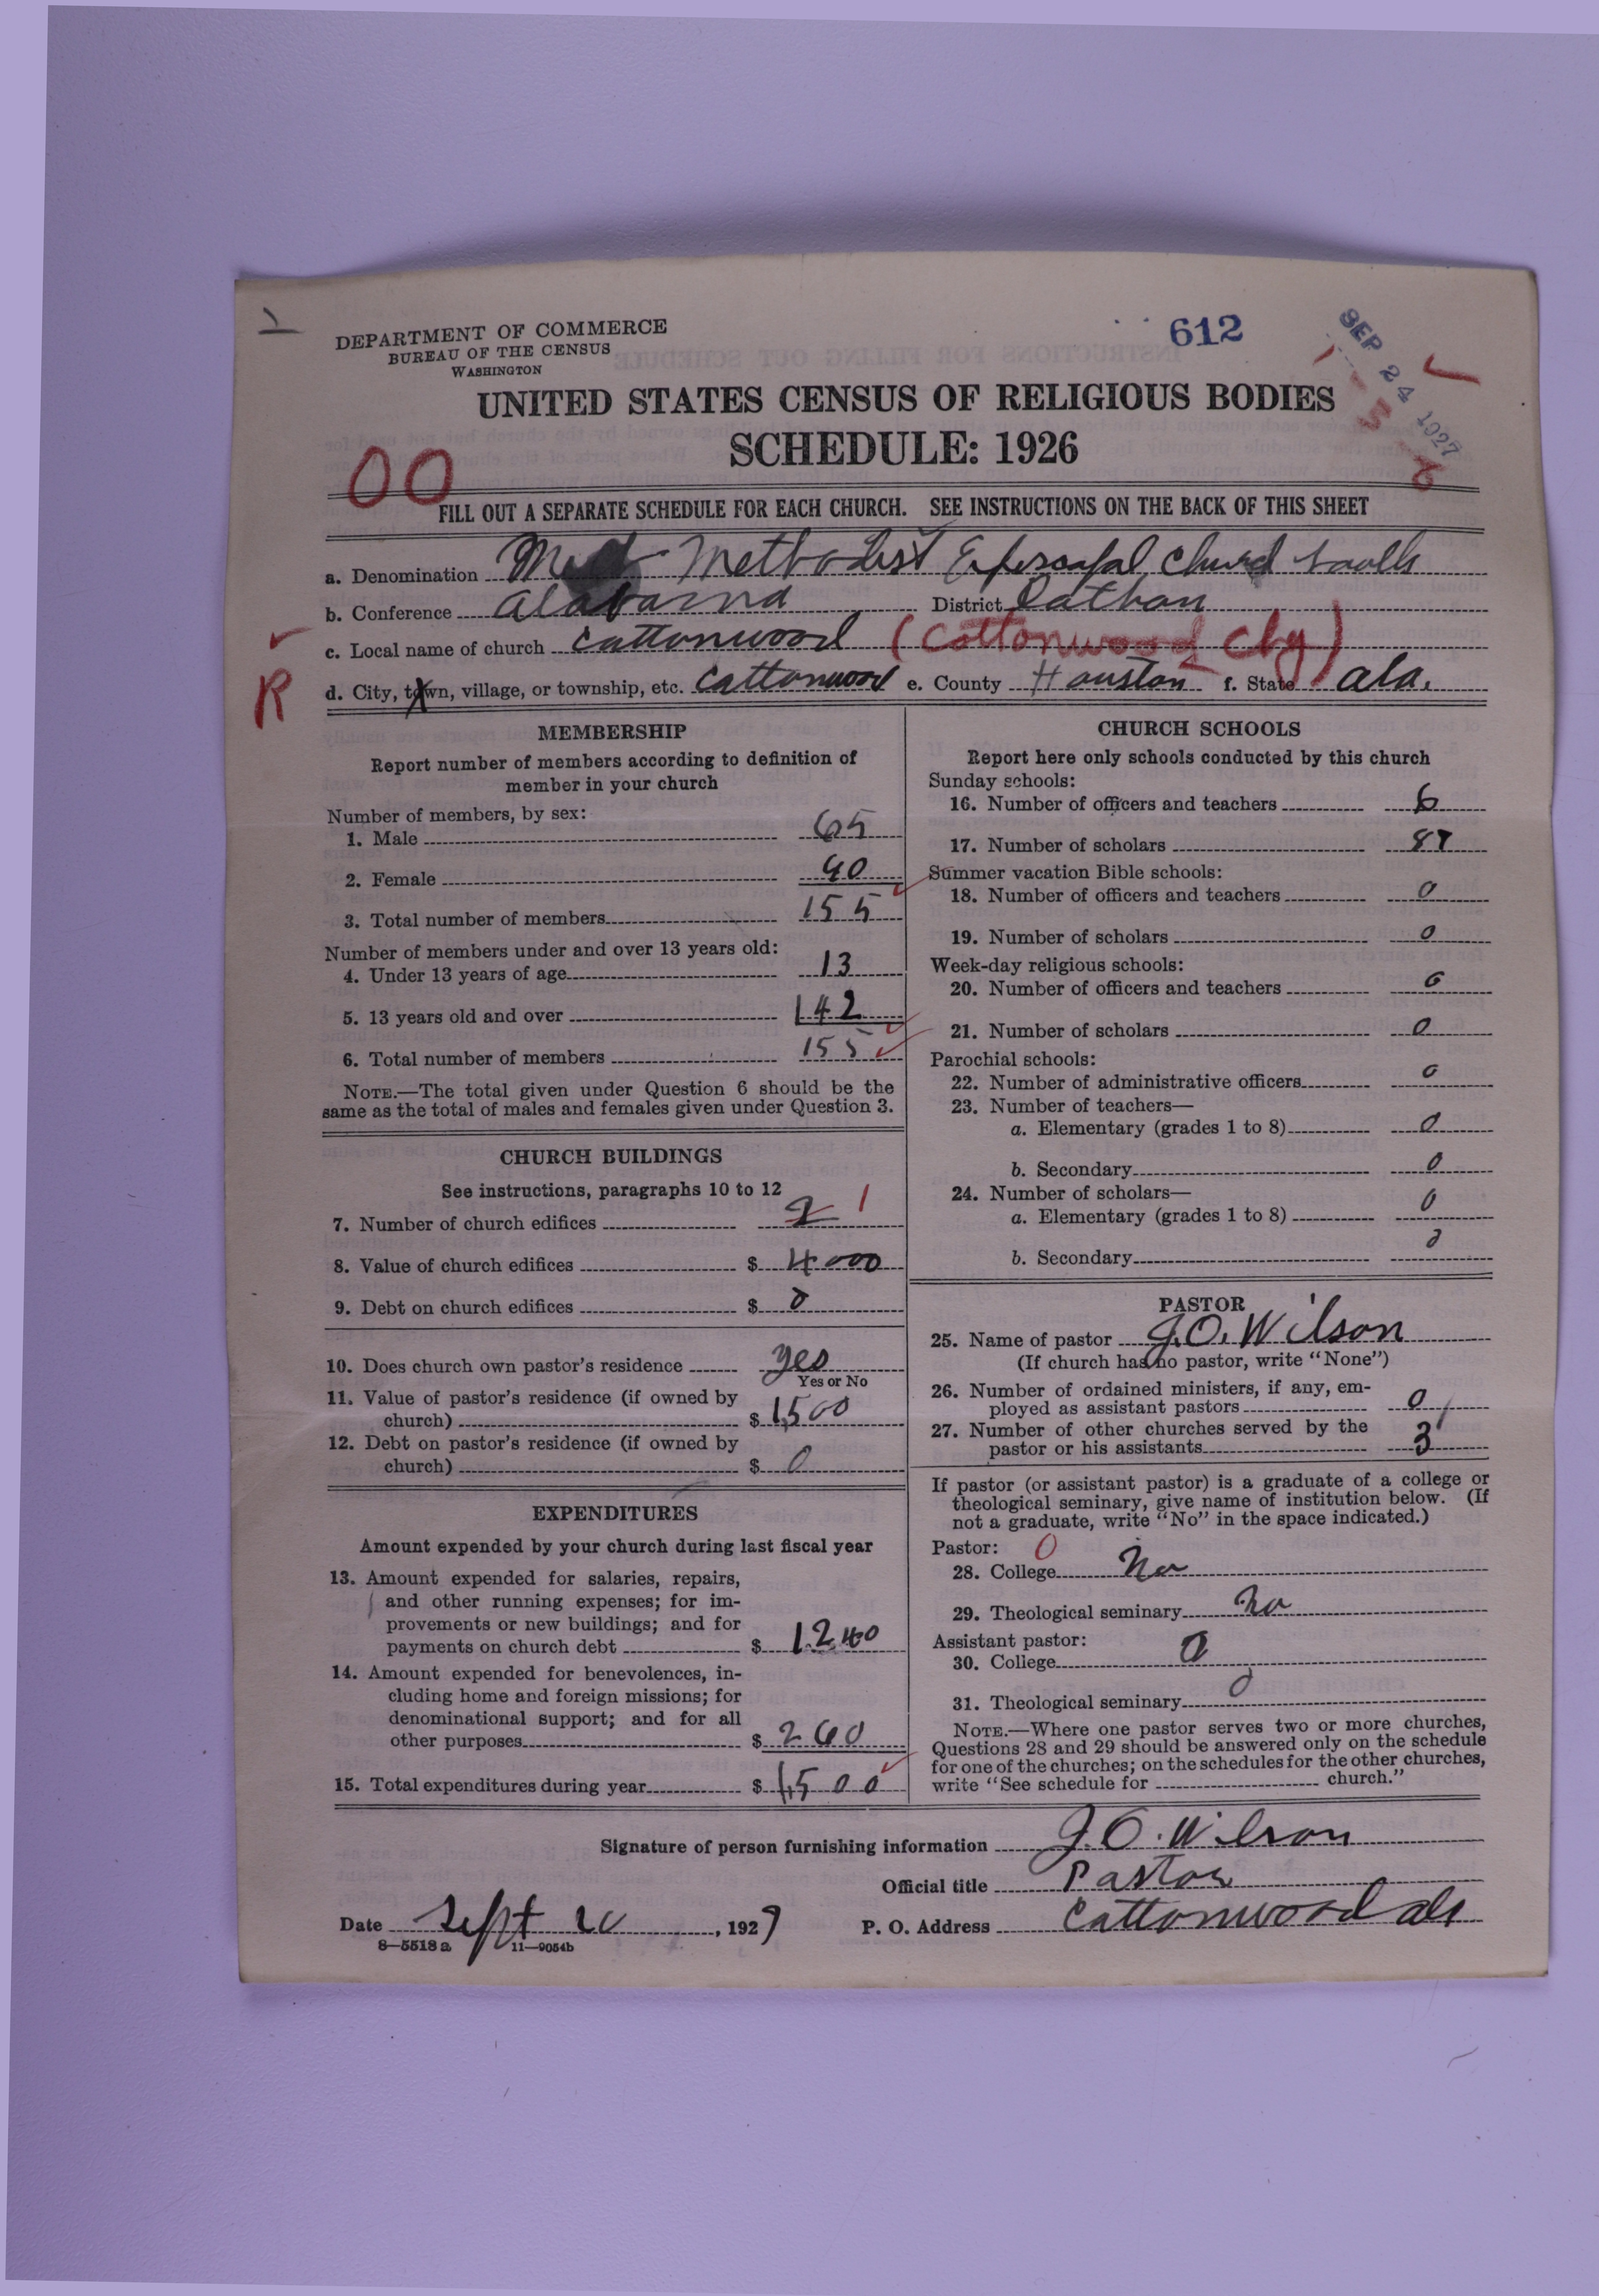 DEPARTMENT OF COMMERCE
BUREAU OF THE CENSUS
WASHINGTON
612
SEP 24 1927
UNITED STATES CENSUS OF RELIGIOUS BODIES
SCHEDULE: 1926
00
FILL OUT A SEPARATE SCHEDULE FOR EACH CHURCH. SEE INSTRUCTIONS ON THE BACK OF THIS SHEET
a. Denomination Methodist Episcopal Church South
b. Conference Alabama District Dothan
c. Local name of church Cottonwood (Cottonwood Chg)
R
d. City, town, village, or township, etc. Cottonwood e. County Houston f. State Ala.
MEMBERSHIP
Report number of members according to definition of
member in your church
Number of members, by sex:
1. Male 65
2. Female 90
3. Total number of members 155
Number of members under and over 13 years old:
4. Under 13 years of age 13
5. 13 years old and over 142
6. Total number of members 155
NOTE.—The total given under Question 6 should be the
same as the total of males and females given under Question 3.
CHURCH BUILDINGS
See instructions, paragraphs 10 to 12
7. Number of church edifices 2 1
8. Value of church edifices $ 4000
9. Debt on church edifices $ 0
10. Does church own pastor's residence yes
Yes or No
11. Value of pastor's residence (if owned by
church) $ 1,500
12. Debt on pastor's residence (if owned by
church) $ 0
EXPENDITURES
Amount expended by your church during last fiscal year
13. Amount expended for salaries, repairs,
and other running expenses; for im-
provements or new buildings; and for
payments on church debt $ 1240
14. Amount expended for benevolences, in-
cluding home and foreign missions; for
denominational support; and for all
other purposes $ 260
15. Total expenditures during year $ 1,500
CHURCH SCHOOLS
Report here only schools conducted by this church
Sunday schools:
16. Number of officers and teachers 6
17. Number of scholars 87
Summer vacation Bible schools:
18. Number of officers and teachers 0
19. Number of scholars 0
Week-day religious schools:
20. Number of officers and teachers 0
21. Number of scholars 0
Parochial schools:
22. Number of administrative officers 0
23. Number of teachers—
a. Elementary (grades 1 to 8) 0
b. Secondary 0
24. Number of scholars—
a. Elementary (grades 1 to 8) 0
b. Secondary 0
PASTOR
25. Name of pastor J. O. Wilson
(If church has no pastor, write "None")
26. Number of ordained ministers, if any, em-
ployed as assistant pastors 0
27. Number of other churches served by the
pastor or his assistants 3
If pastor (or assistant pastor) is a graduate of a college or
theological seminary, give name of institution below. (If
not a graduate, write "No" in the space indicated.)
Pastor: 0
28. College No
29. Theological seminary No
Assistant pastor:
30. College 0
31. Theological seminary 0
NOTE.—Where one pastor serves two or more churches,
Questions 28 and 29 should be answered only on the schedule
for one of the churches; on the schedules for the other churches,
write "See schedule for church."
Signature of person furnishing information J. O. Wilson
Official title Pastor
Date Sept 20, 1927 P. O. Address Cottonwood Ala
8—5518 a 11—9054b